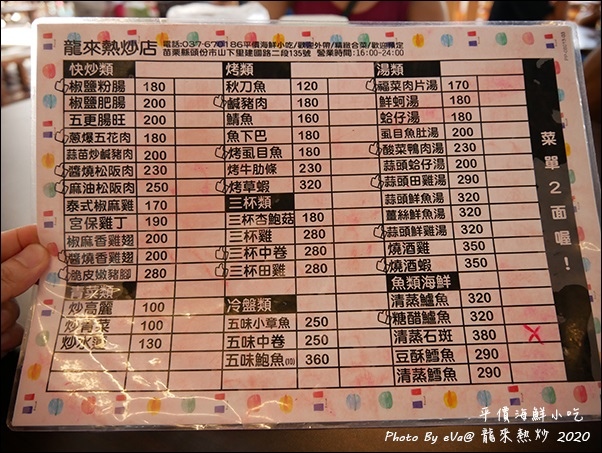 龍來熱炒店
電話:037-670186平價海鮮小吃/歡迎外帶/精緻合菜/歡迎預定
苗栗縣頭份市山下里建國路二段135號 營業時間:16:00-24:00
快炒類
椒鹽粉腸 180
椒鹽肥腸 200
五更腸旺 200
蔥爆五花肉 180
蒜苗炒鹹豬肉 200
醬燒松阪肉 230
麻油松阪肉 250
泰式椒麻雞 170
宮保雞丁 190
椒麻香雞翅 200
醬燒香雞翅 200
脆皮嫩豬腳 280
青菜類
炒高麗 100
炒青菜 100
炒水蓮 130
烤類
秋刀魚 120
鹹豬肉 180
鯖魚 160
魚下巴 180
烤虱目魚 180
烤牛肋條 230
烤草蝦 320
三杯類
三杯杏鮑菇 180
三杯雞 280
三杯中卷 280
三杯田雞 280
冷盤類
五味小章魚 250
五味中卷 250
五味鮑魚(10) 360
湯類
福菜肉片湯 170
鮮蚵湯 180
蛤仔湯 180
虱目魚肚湯 200
酸菜鴨肉湯 230
蒜頭蛤仔湯 200
蒜頭田雞湯 290
蒜頭鮮魚湯 320
薑絲鮮魚湯 320
蒜頭鮮雞湯 320
燒酒雞 350
燒酒蝦 350
魚類海鮮
清蒸鱸魚 320
糖醋鱸魚 320
清蒸石斑 380
豆酥鱈魚 290
清蒸鱈魚 290
菜單2面喔!
平價海鮮小吃
Photo By eVa@ 龍來熱炒 2020